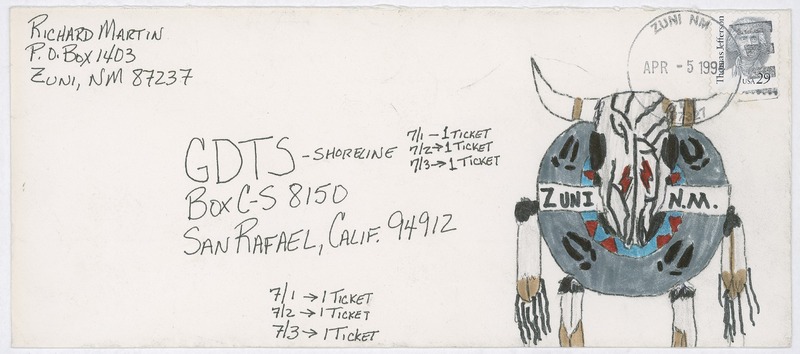 Richard Martin
P.O. Box 1403
Zuni, NM 87237
GDTS - Shoreline
Box C-S 8150
San Rafael, Calif. 94912
7/1 - 1 Ticket
7/2 → 1 Ticket
7/3 → 1 Ticket
7/1 → 1 Ticket
7/2 → 1 Ticket
7/3 → 1 Ticket
ZUNI NM
APR - 5
Thomas Jefferson
USA 29
ZUNI N.M.